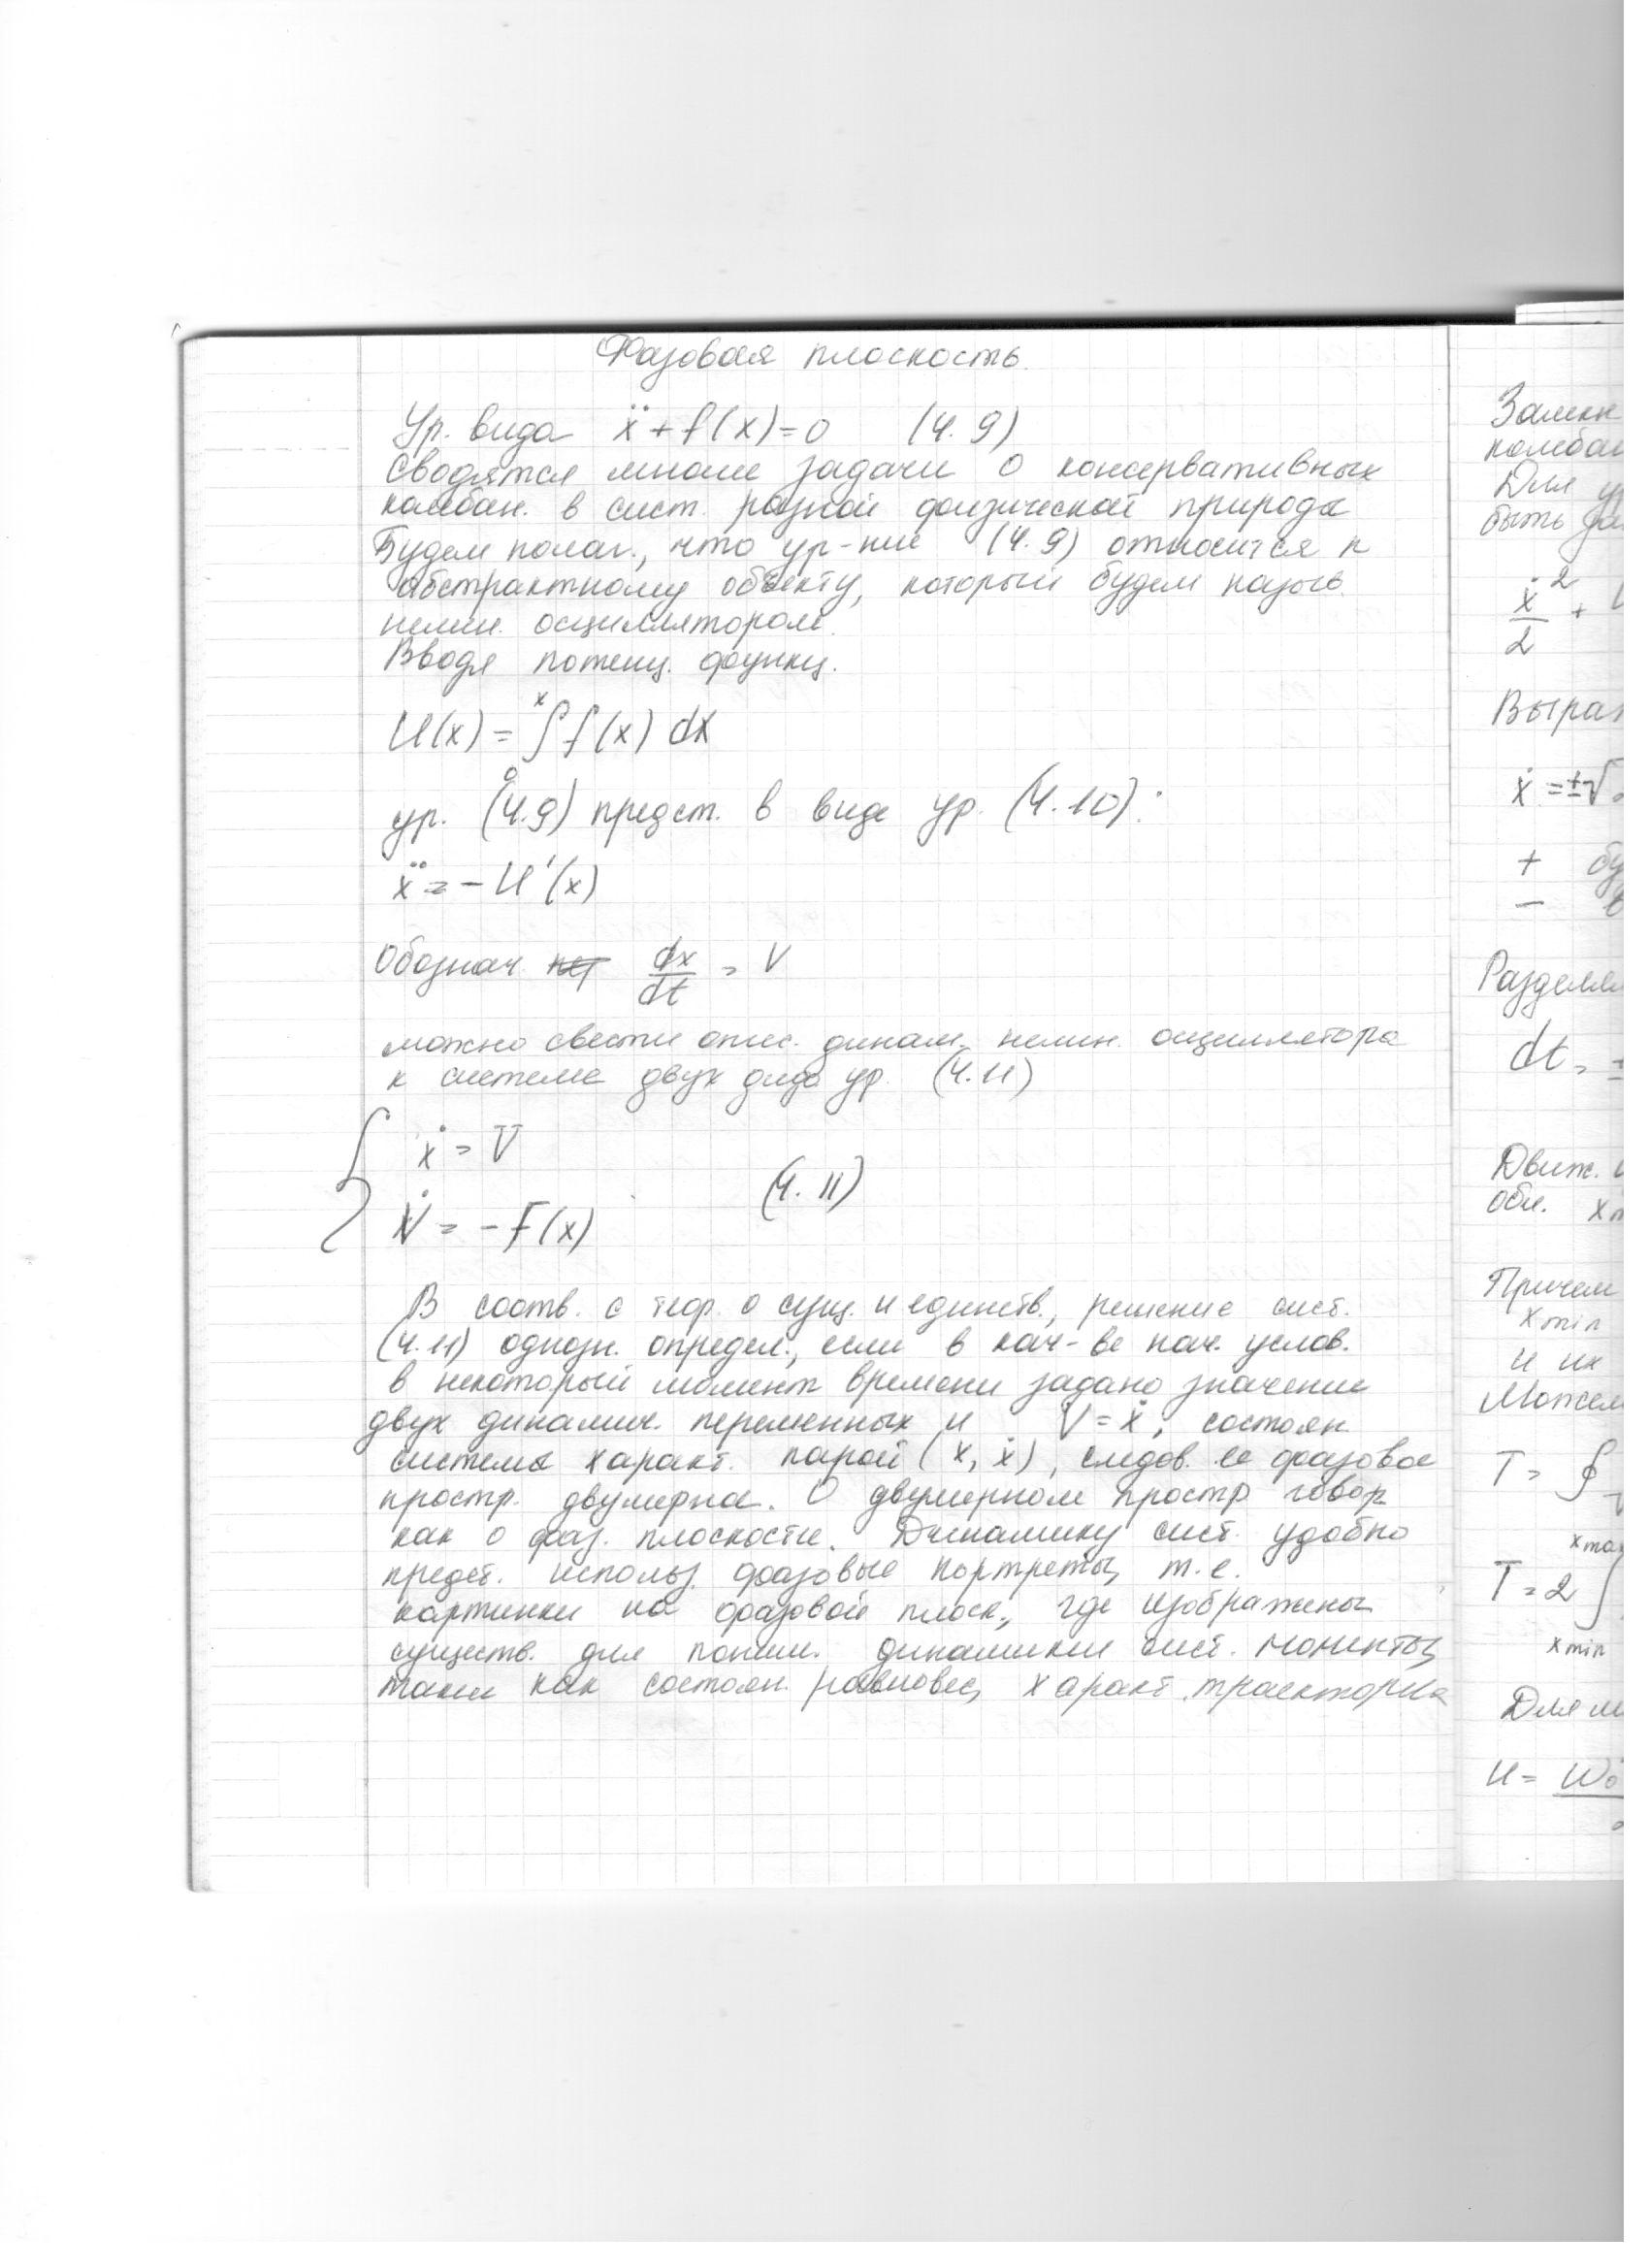 Фазовая плоскость.
Ур. вида ẍ + f(x) = 0 (4.9)
сводятся многие задачи о консервативных
колебан. в сист. разной физической природы
Будем полаг., что ур-ние (4.9) относится к
абстрактному объекту, который будем назыв.
нелин. осциллятором.
Вводя потенц. функц.
U(x) = ∫₀ˣ f(x) dx
ур. (4.9) предст. в виде ур. (4.10):
ẍ = -U'(x)
Обознач. dx/dt = V
можно свести опис. динам. нелин. осциллятора
к системе двух ур. (4.11)
{ ẋ = V
V̇ = -F(x) (4.11)
В соотв. с теор. о сущ. и единств., решение сист.
(4.11) однозн. определ., если в кач-ве нач. услов.
в некоторый момент времени задано значение
двух динамич. переменных и V = ẋ, состоян.
системы характ. парой (x, ẋ), следов. ее фазовое
простр. двумерно. О двумерном простр говор
как о фаз. плоскости. Динамику сист. удобно
предст. использ. фазовые портреты, т.е.
картинки на фазовой плоск., где изображены
существ. для поним. динамики сист. моменты,
такие как состоян. равновес, характ. траектории
Замкн
колебан
Для ур
быть
ẋ²/2 +
Выраз
ẋ = ±√
+ бу
- в
Разделя
dt = ±
Движ.
обл. x
Причем
xmin
и их
Можем
T = ∮
xmax
T = 2 ∫
xmin
Для
U = ω₀